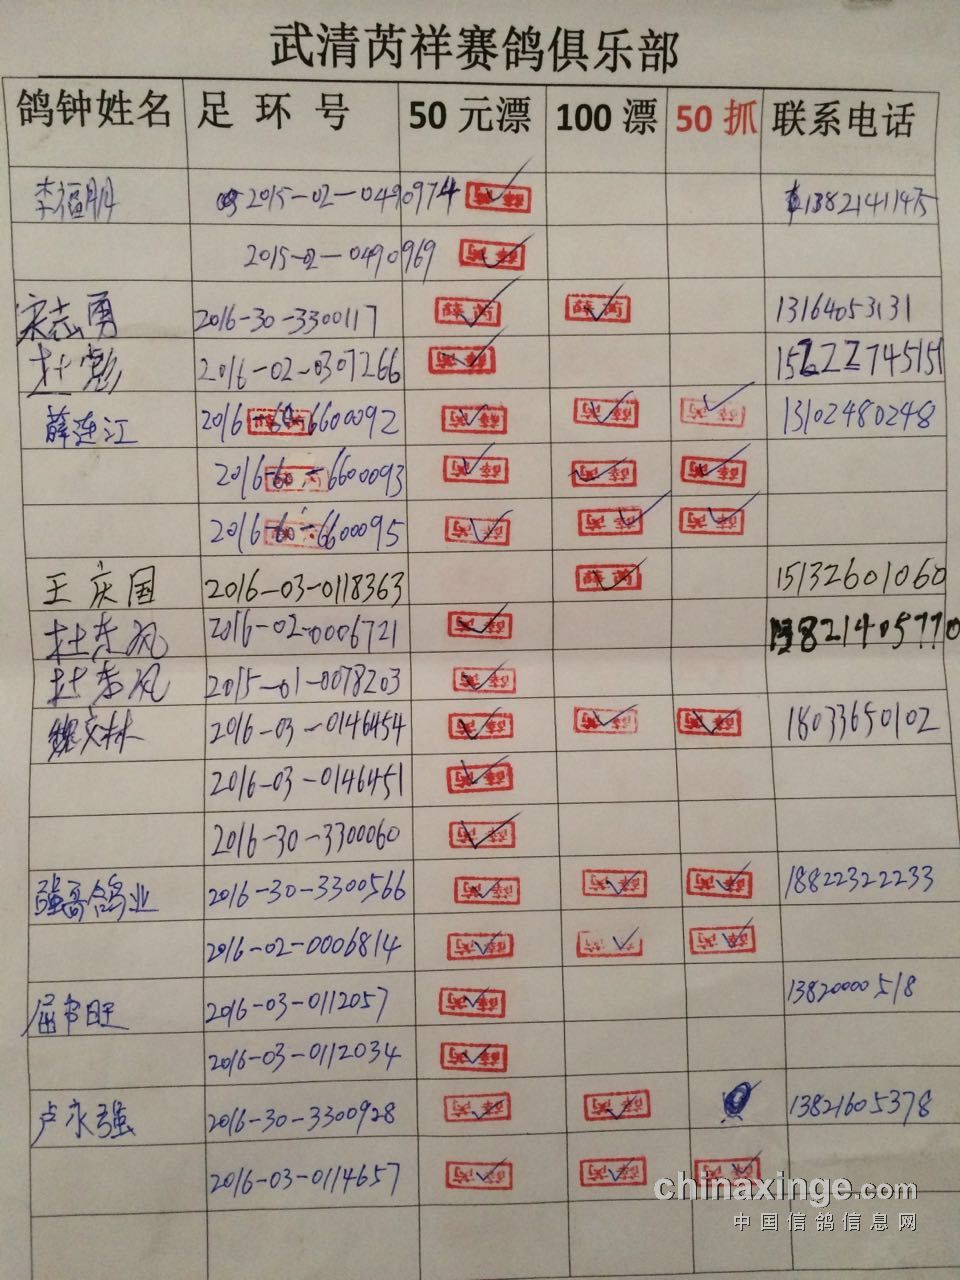 武清芮祥赛鸽俱乐部
鸽钟姓名 足环号 50元漂 100漂 50抓 联系电话
李福朋 2015-02-0490974 13821411475
2015-02-0490969
宋志勇 2016-30-3300117 13164053131
杜彪 2016-02-0307266 15222745151
薛连江 2016-60-6600092 13102480248
2016-60-6600093
2016-60-6600095
王庆国 2016-03-0118363 15132601060
杜东风 2016-02-0006721
杜春风 2015-01-0078203
魏文林 2016-03-0146454 18033650102
2016-03-0146451
2016-30-3300060
强哥鸽业 2016-30-3300566 18822322233
2016-02-0006814
屈书旺 2016-03-0112057 13820000518
2016-03-0112034
卢永强 2016-30-3300928 13821605378
2016-03-0114657
chinaxinge.com
中国信鸽信息网